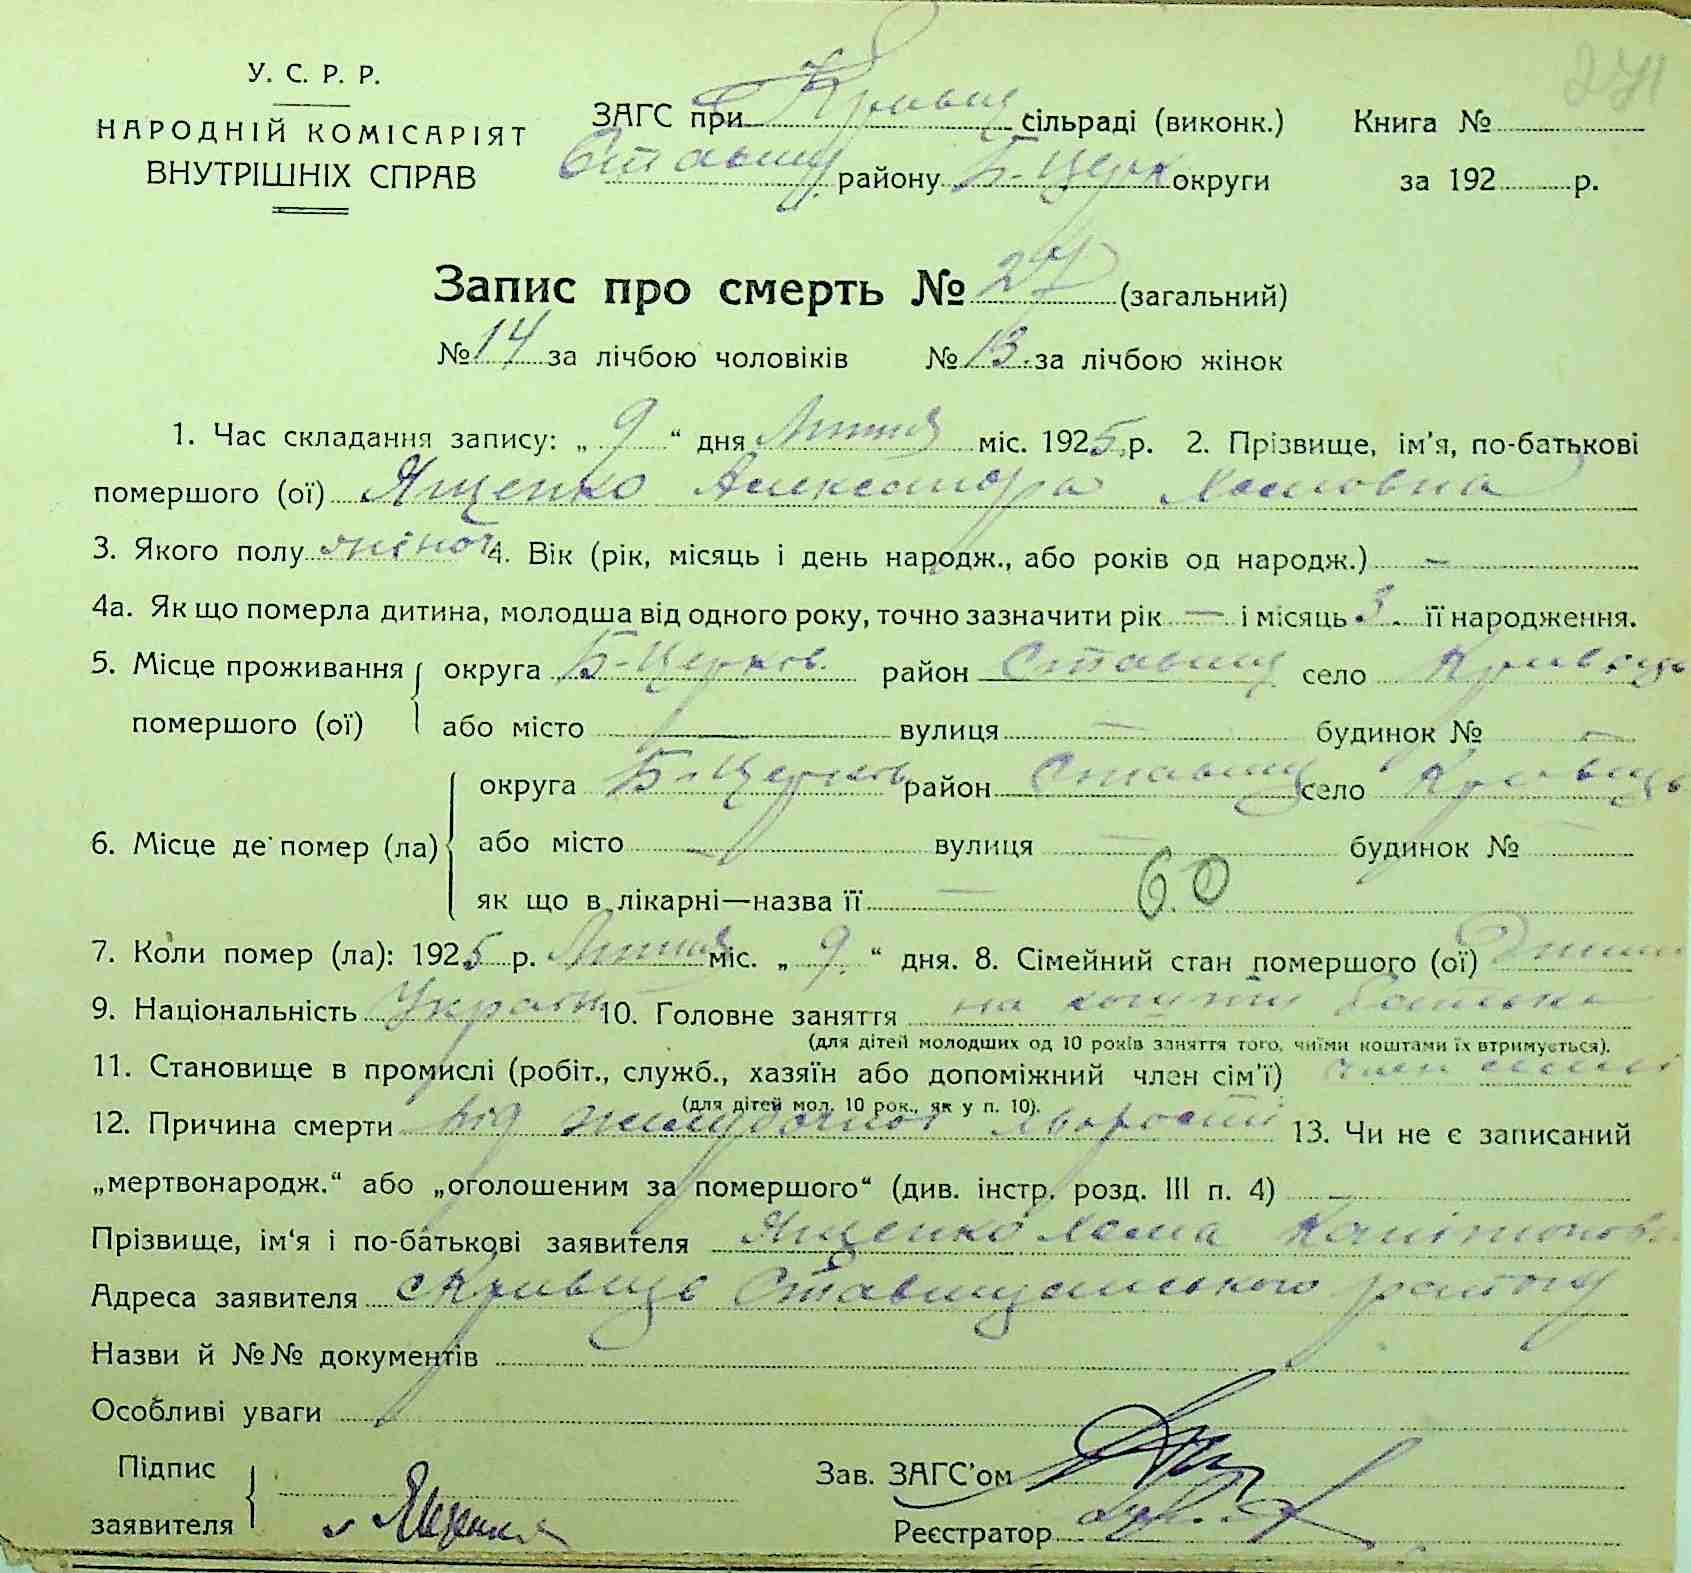 271
У. С. Р. Р.
НАРОДНІЙ КОМІСАРІЯТ
ВНУТРІШНІХ СПРАВ
ЗАГС при Кривец сільраді (виконк.) Книга №
Ставищ. району Б-Церк округи за 192 р.
Запис про смерть № 27 (загальний)
№ 14 за лічбою чоловіків № 13 за лічбою жінок
1. Час складання запису: „ 9 “ дня Липня міс. 1925 р. 2. Прізвище, ім'я, по-батькові
помершого (ої) Ященко Александра Хомовна
3. Якого полу жіноч 4. Вік (рік, місяць і день народж., або років од народж.) —
4а. Як що померла дитина, молодша від одного року, точно зазначити рік — і місяць 3. її народження.
5. Місце проживання округа Б-Церков. район Ставищ село Кривець
помершого (ої) або місто — вулиця — будинок № —
округа Б-Церков район Ставищ село Кривець
6. Місце де помер (ла) або місто — вулиця — будинок № —
як що в лікарні—назва її — 60
7. Коли помер (ла): 1925 р. Липня міс. „ 9 “ дня. 8. Сімейний стан помершого (ої) Дитина
9. Національність Україн 10. Головне заняття на кошти батька
(для дітей молодших од 10 років заняття того, чиїми коштами їх втримується).
11. Становище в промислі (робіт., служб., хазяїн або допоміжний член сім'ї) член семї
(для дітей мол. 10 рок., як у п. 10).
12. Причина смерти від желудочної хворости 13. Чи не є записаний
„мертвонародж.“ або „оголошеним за помершого“ (див. інстр. розд. III п. 4) —
Прізвище, ім'я і по-батькові заявителя Ященко Хома Капітонов
Адреса заявителя с Кривець Ставищанського району
Назви й №№ документів
Особливі уваги
Підпис
заявителя Ященко
Зав. ЗАГС'ом
Реєстратор